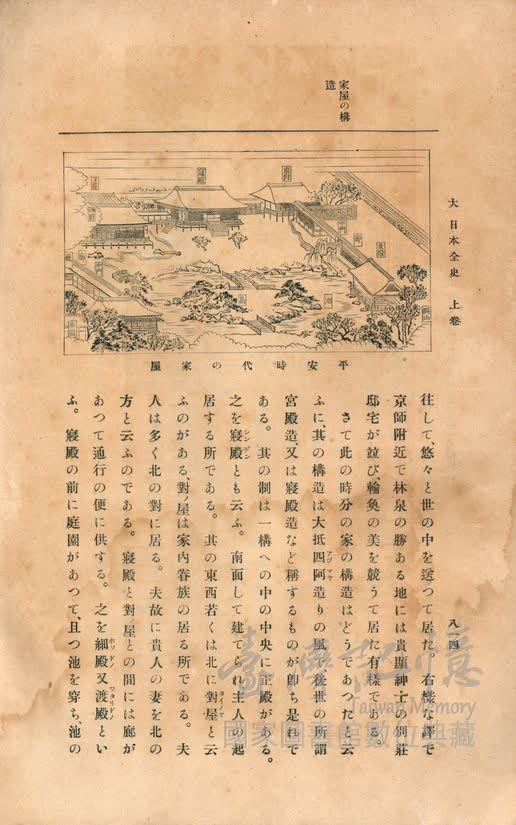 大日本全史 上卷
八一四
家屋の構
造
平安時代の家屋
往して、悠々と世の中を送つて居た右樣な譯で
京師附近で林泉の勝ある地には貴顯紳士の別莊
邸宅が竝び、輪奐の美を競うて居た有樣である。
さて此の時分の家の構造はどうであつたと云
ふに、其の構造は大抵四阿造りの風、後世の所謂
アヅマヤ
宮殿造、又は寢殿造など稱するものが卽ち是れで
ある。其の制は一構への中の中央に正殿がある。
之を寢殿とも云ふ。南面して建てれ主人の起
シンデン
居する所である。其の東西若くは北に對屋と云
タイノヤ
ふのがある、對ノ屋は家内眷族の居る所である。夫
人は多く北の對に居る。夫故に貴人の妻を北の
方と云ふのである。寢殿と對ノ屋との間には廊が
あつて通行の便に供する。之を細殿又渡殿とい
ホソドノ ワタリドノ
ふ。寢殿の前に庭園があつて、且つ池を穿ち、池の
寢殿
臺灣記憶
Taiwan Memory
國家圖書館數位典藏